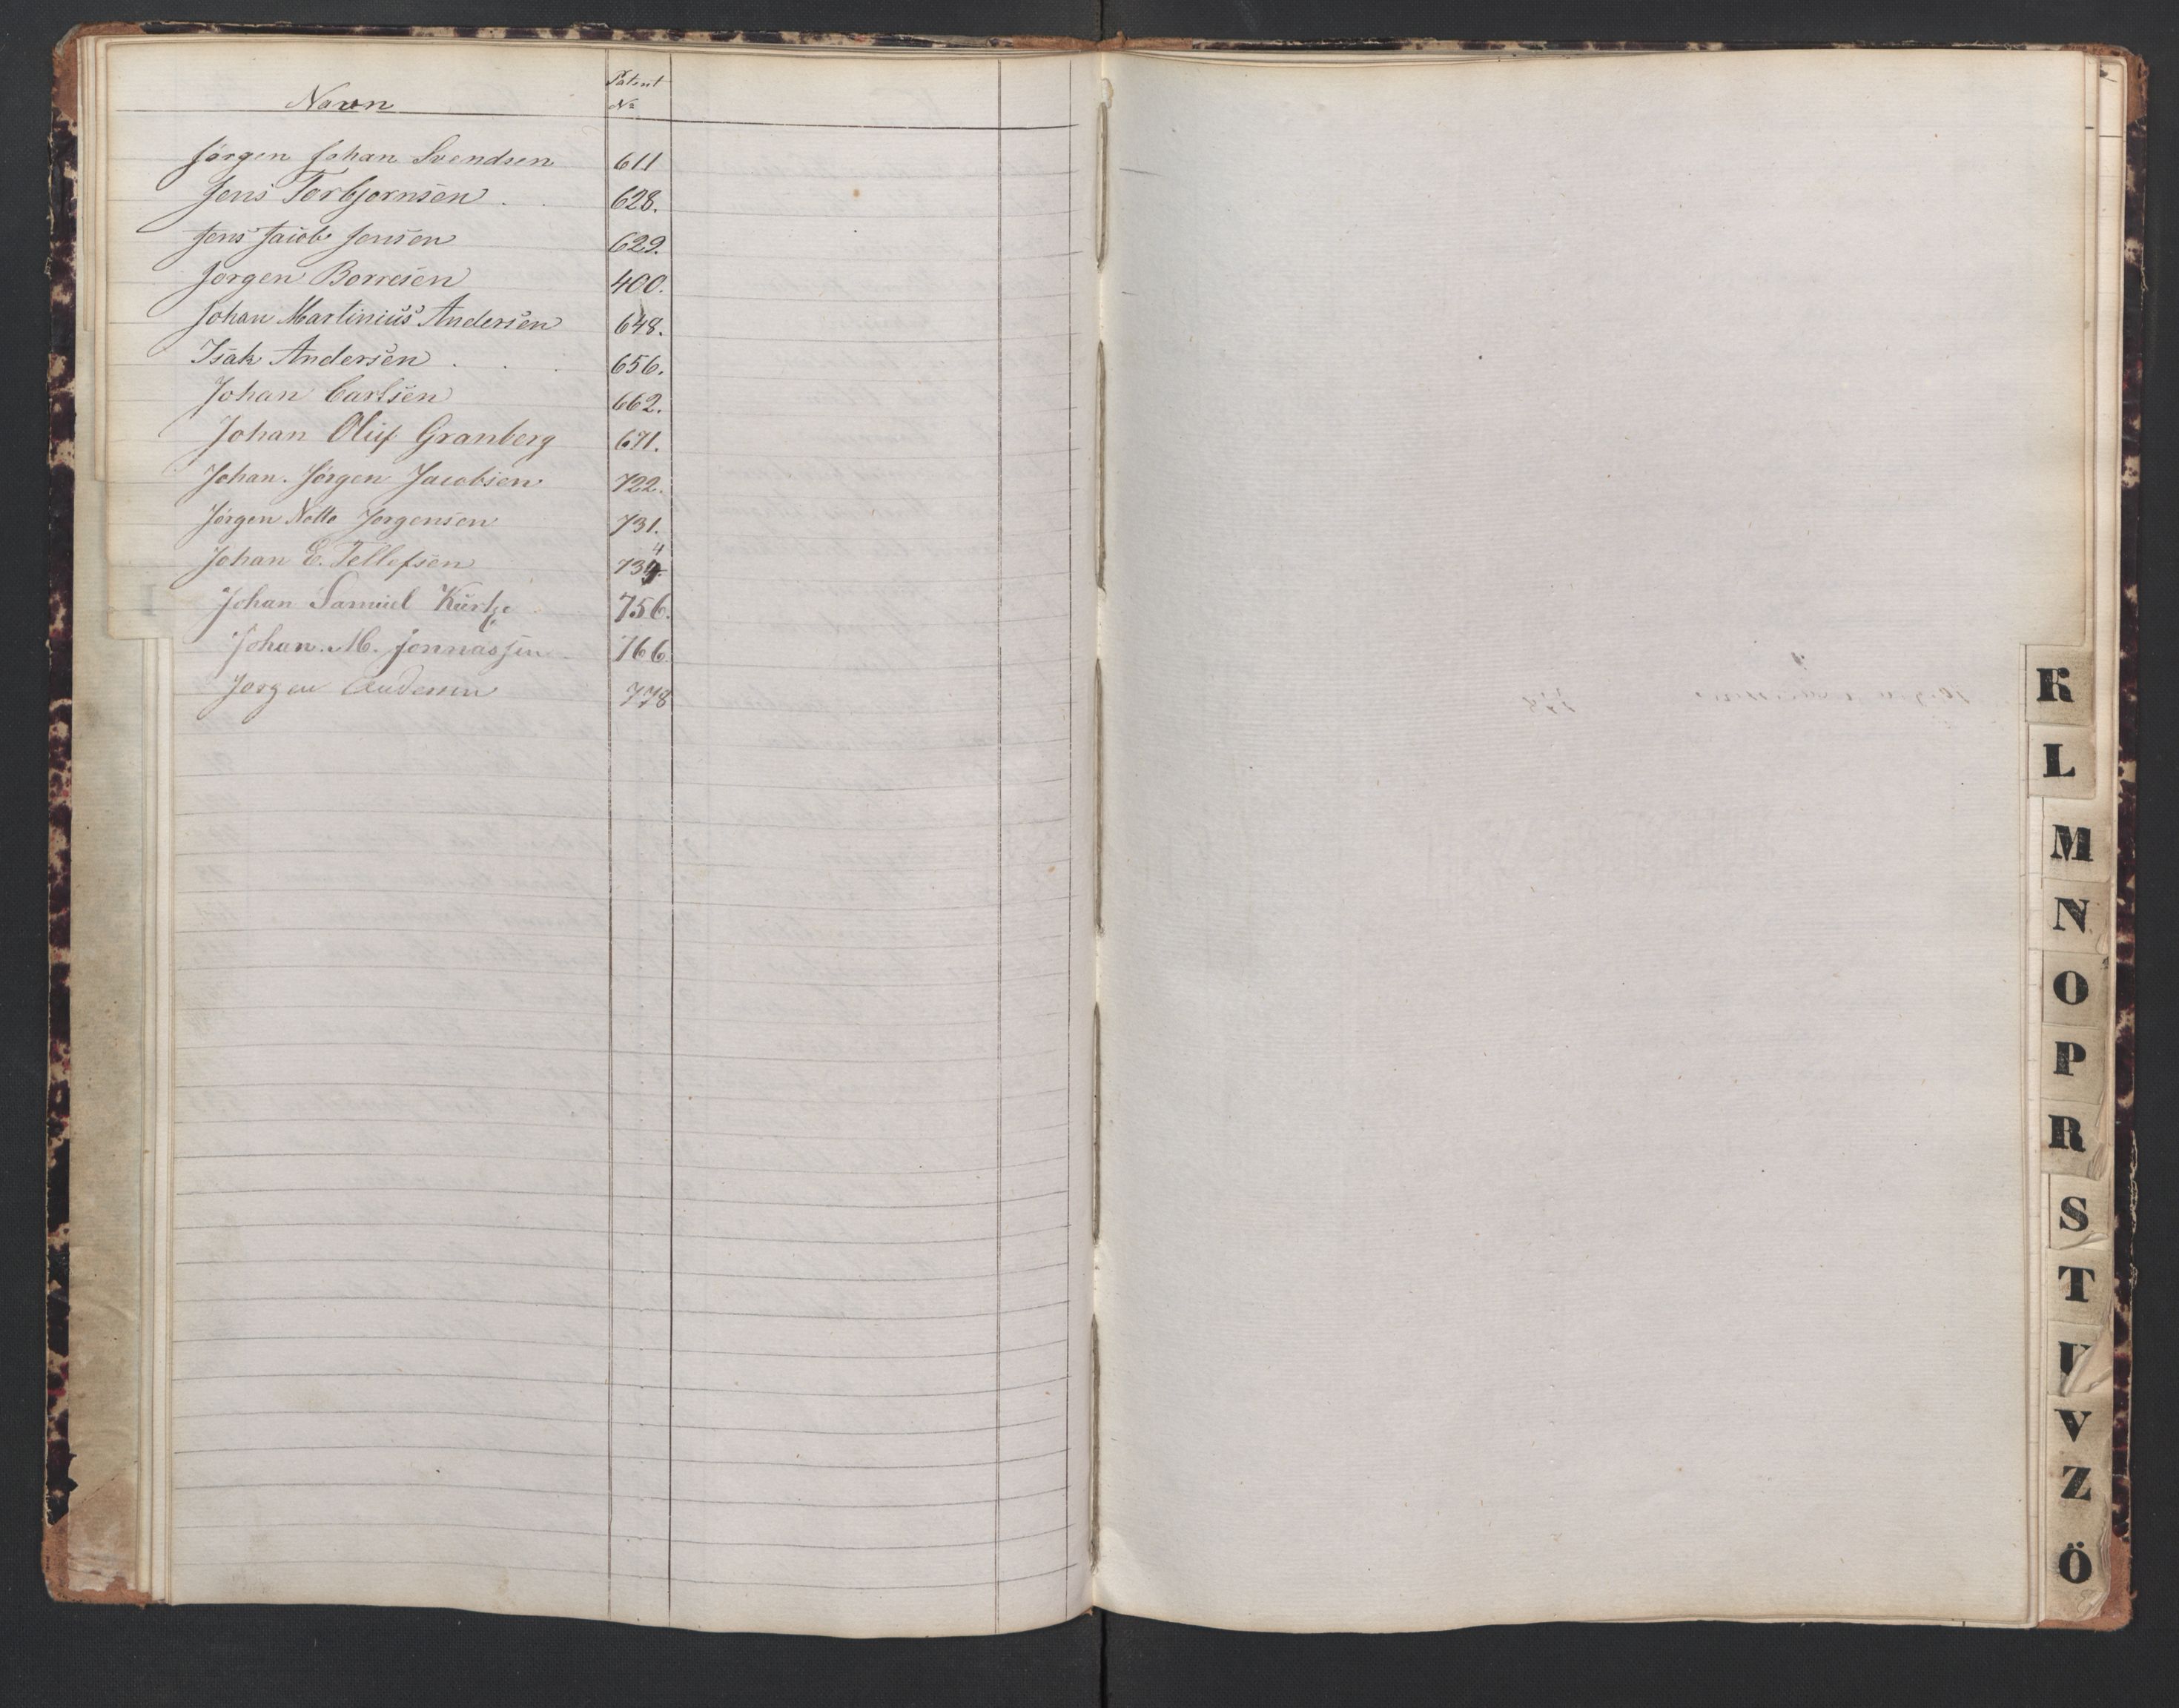 Navn
Patent
No
Jørgen Johan Svendsen 611
Jens Torbjornsen . . 628.
Jens Jacob Jensen 629.
Jorgen Borresen 400.
Johan Martinius Andersen 648.
Isak Andersen . . . 656.
Johan Carlsen 662.
Johan Oluf Granberg 671.
Johan. Jørgen Jacobsen 722.
Jørgen Notto Jorgensen 731.
Johan E. Tellefsen 734.
Johan Samuel Kurtze 756.
Johan. M. Jonnassen 766.
Jorgen Andersen 778
K
L
M
N
O
P
R
S
T
U
V
Z
Ö